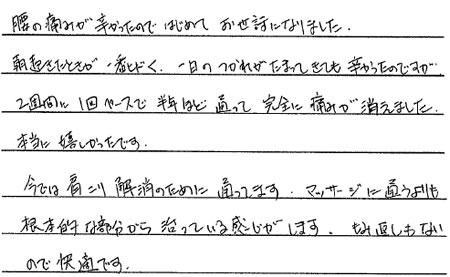 腰の痛みが辛かったので はじめて お世話になりました.
朝起きたときが 一番ひどく. 一日の つかれがたまってきても 辛かったのですが
2週間に 1回 ペースで 半年ほど 通って 完全に 痛みが 消えました.
本当に 嬉しかったです.
今では 肩こり 解消のために 通ってます. マッサージに 通うよりも
根本的な部分から 治っている 感じがします. もみ返しもない
ので 快適です.